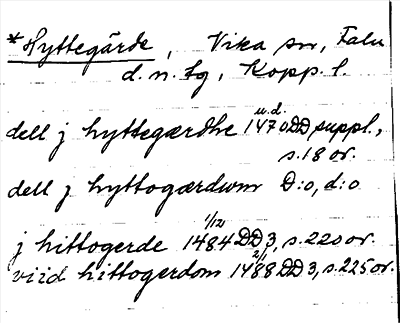 *Hyttegärde, Vika sn, Falu
d.n. tg, Kopp. l.
u.d.
dell j hyttegærdhe 1470 DD suppl.,
s.18 or.
dell j hyttogærdum D:o, d:o
1/12
j hittogerde 1484 DD 3, s.220 or.
2/1
viid hittogerdom 1488 DD 3, s.225 or.